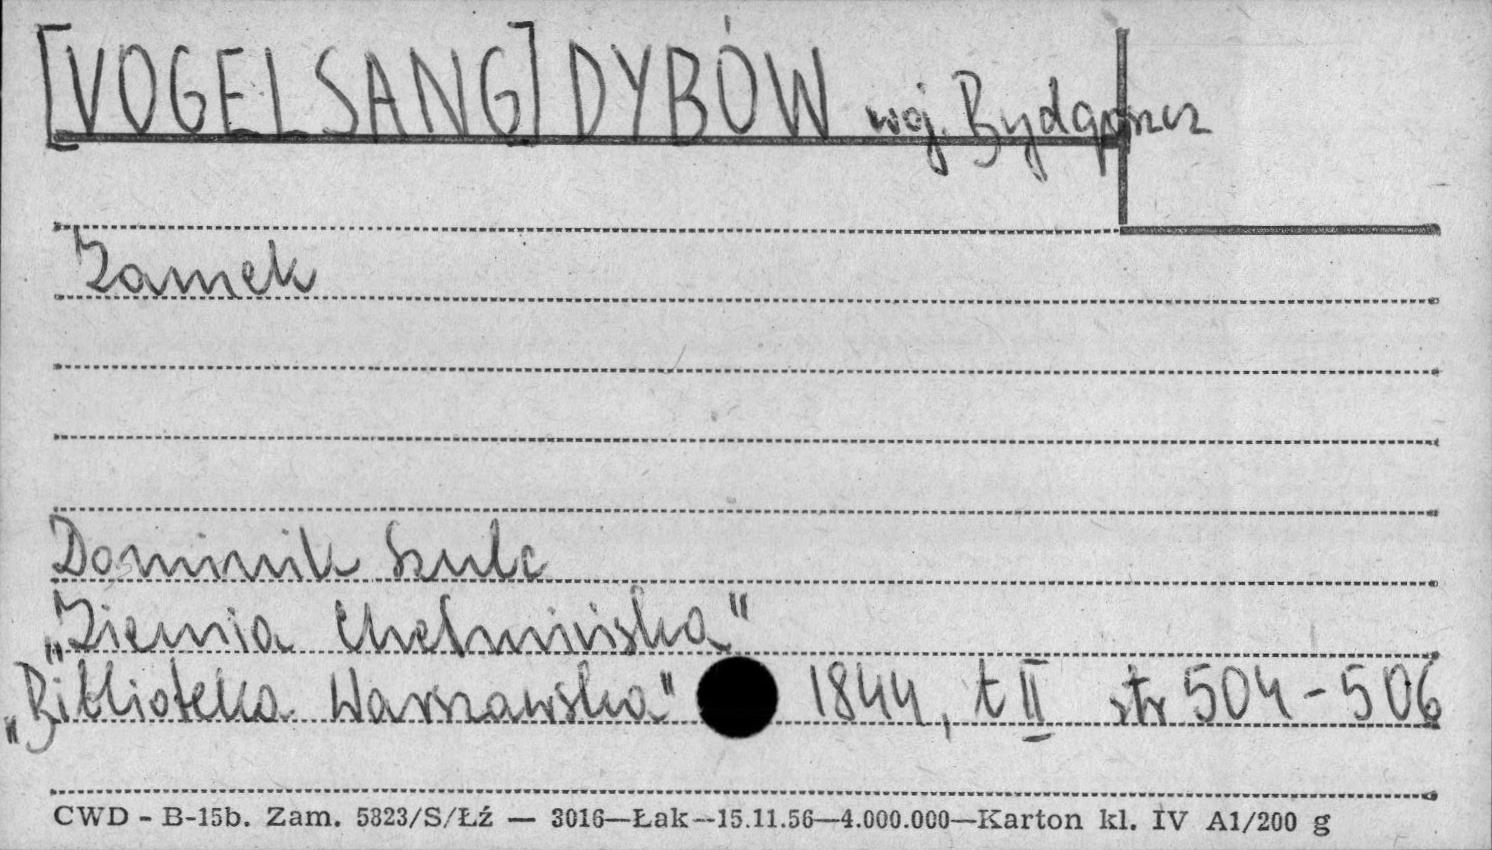 [VOGELSANG] DYBÓW woj. Bydgoszcz
Zamek
Dominik Szulc
„Ziemia Chełmińska"
„Biblioteka Warszawska" 1844, t II str 504-506
CWD - B-15b. Zam. 5823/S/Łź — 3016—Łak—15.11.56—4.000.000—Karton kl. IV A1/200 g